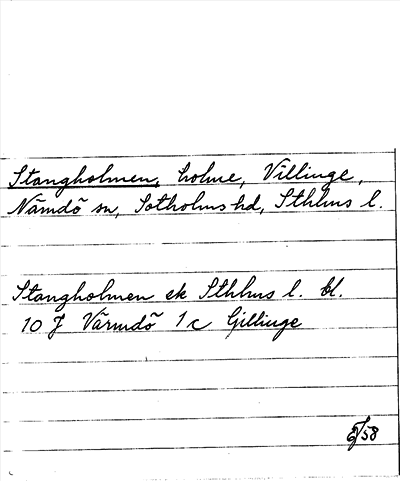 Stangholmen, holme, Villinge,
Nämdö sn, Sotholms hd, Sthlms l.
Stangholmen ek Sthlms l. bl.
10 J Värmdö 1 c Gillinge
58